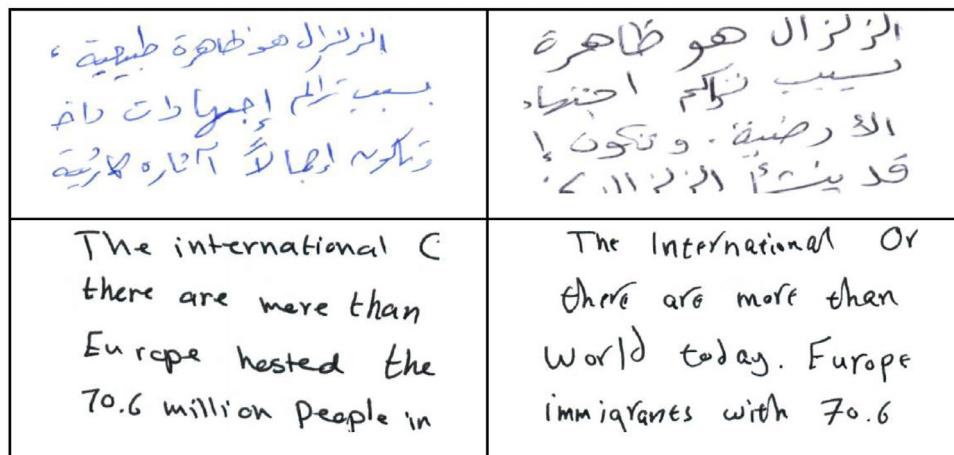 الزلزال هو ظاهرة طبيعية ،
بسبب تراكم إجهادات داخ
وتكون إجمالاً آثاره كارثية
الزلزال هو ظاهرة
بسبب تراكم اجتهاد
الأرضية . وتكون إ
قد ينشأ الزلزال
The international C
there are more than
Europe hosted the
70.6 million people in
The International Or
there are more than
World today. Europe
immigrants with 70.6